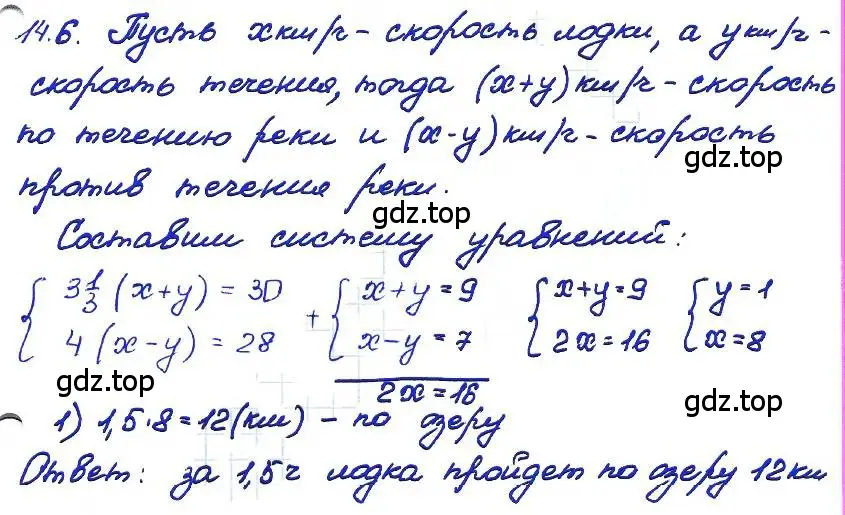 14.6. Пусть x км/ч - скорость лодки, а y км/ч -
скорость течения, тогда (x+y) км/ч - скорость
по течению реки и (x-y) км/ч - скорость
gdz.top
против течения реки.
gdz.top
Составим систему уравнений:
{ 3 1/3 (x+y) = 30 + { x+y=9 { x+y=9 { y=1
4 (x-y) = 28 x-y=7 2x=16 x=8
gdz.top gdz.top
2x=16
1) 1,5·8=12(км) - по озеру
Ответ: за 1,5ч лодка пройдет по озеру 12км